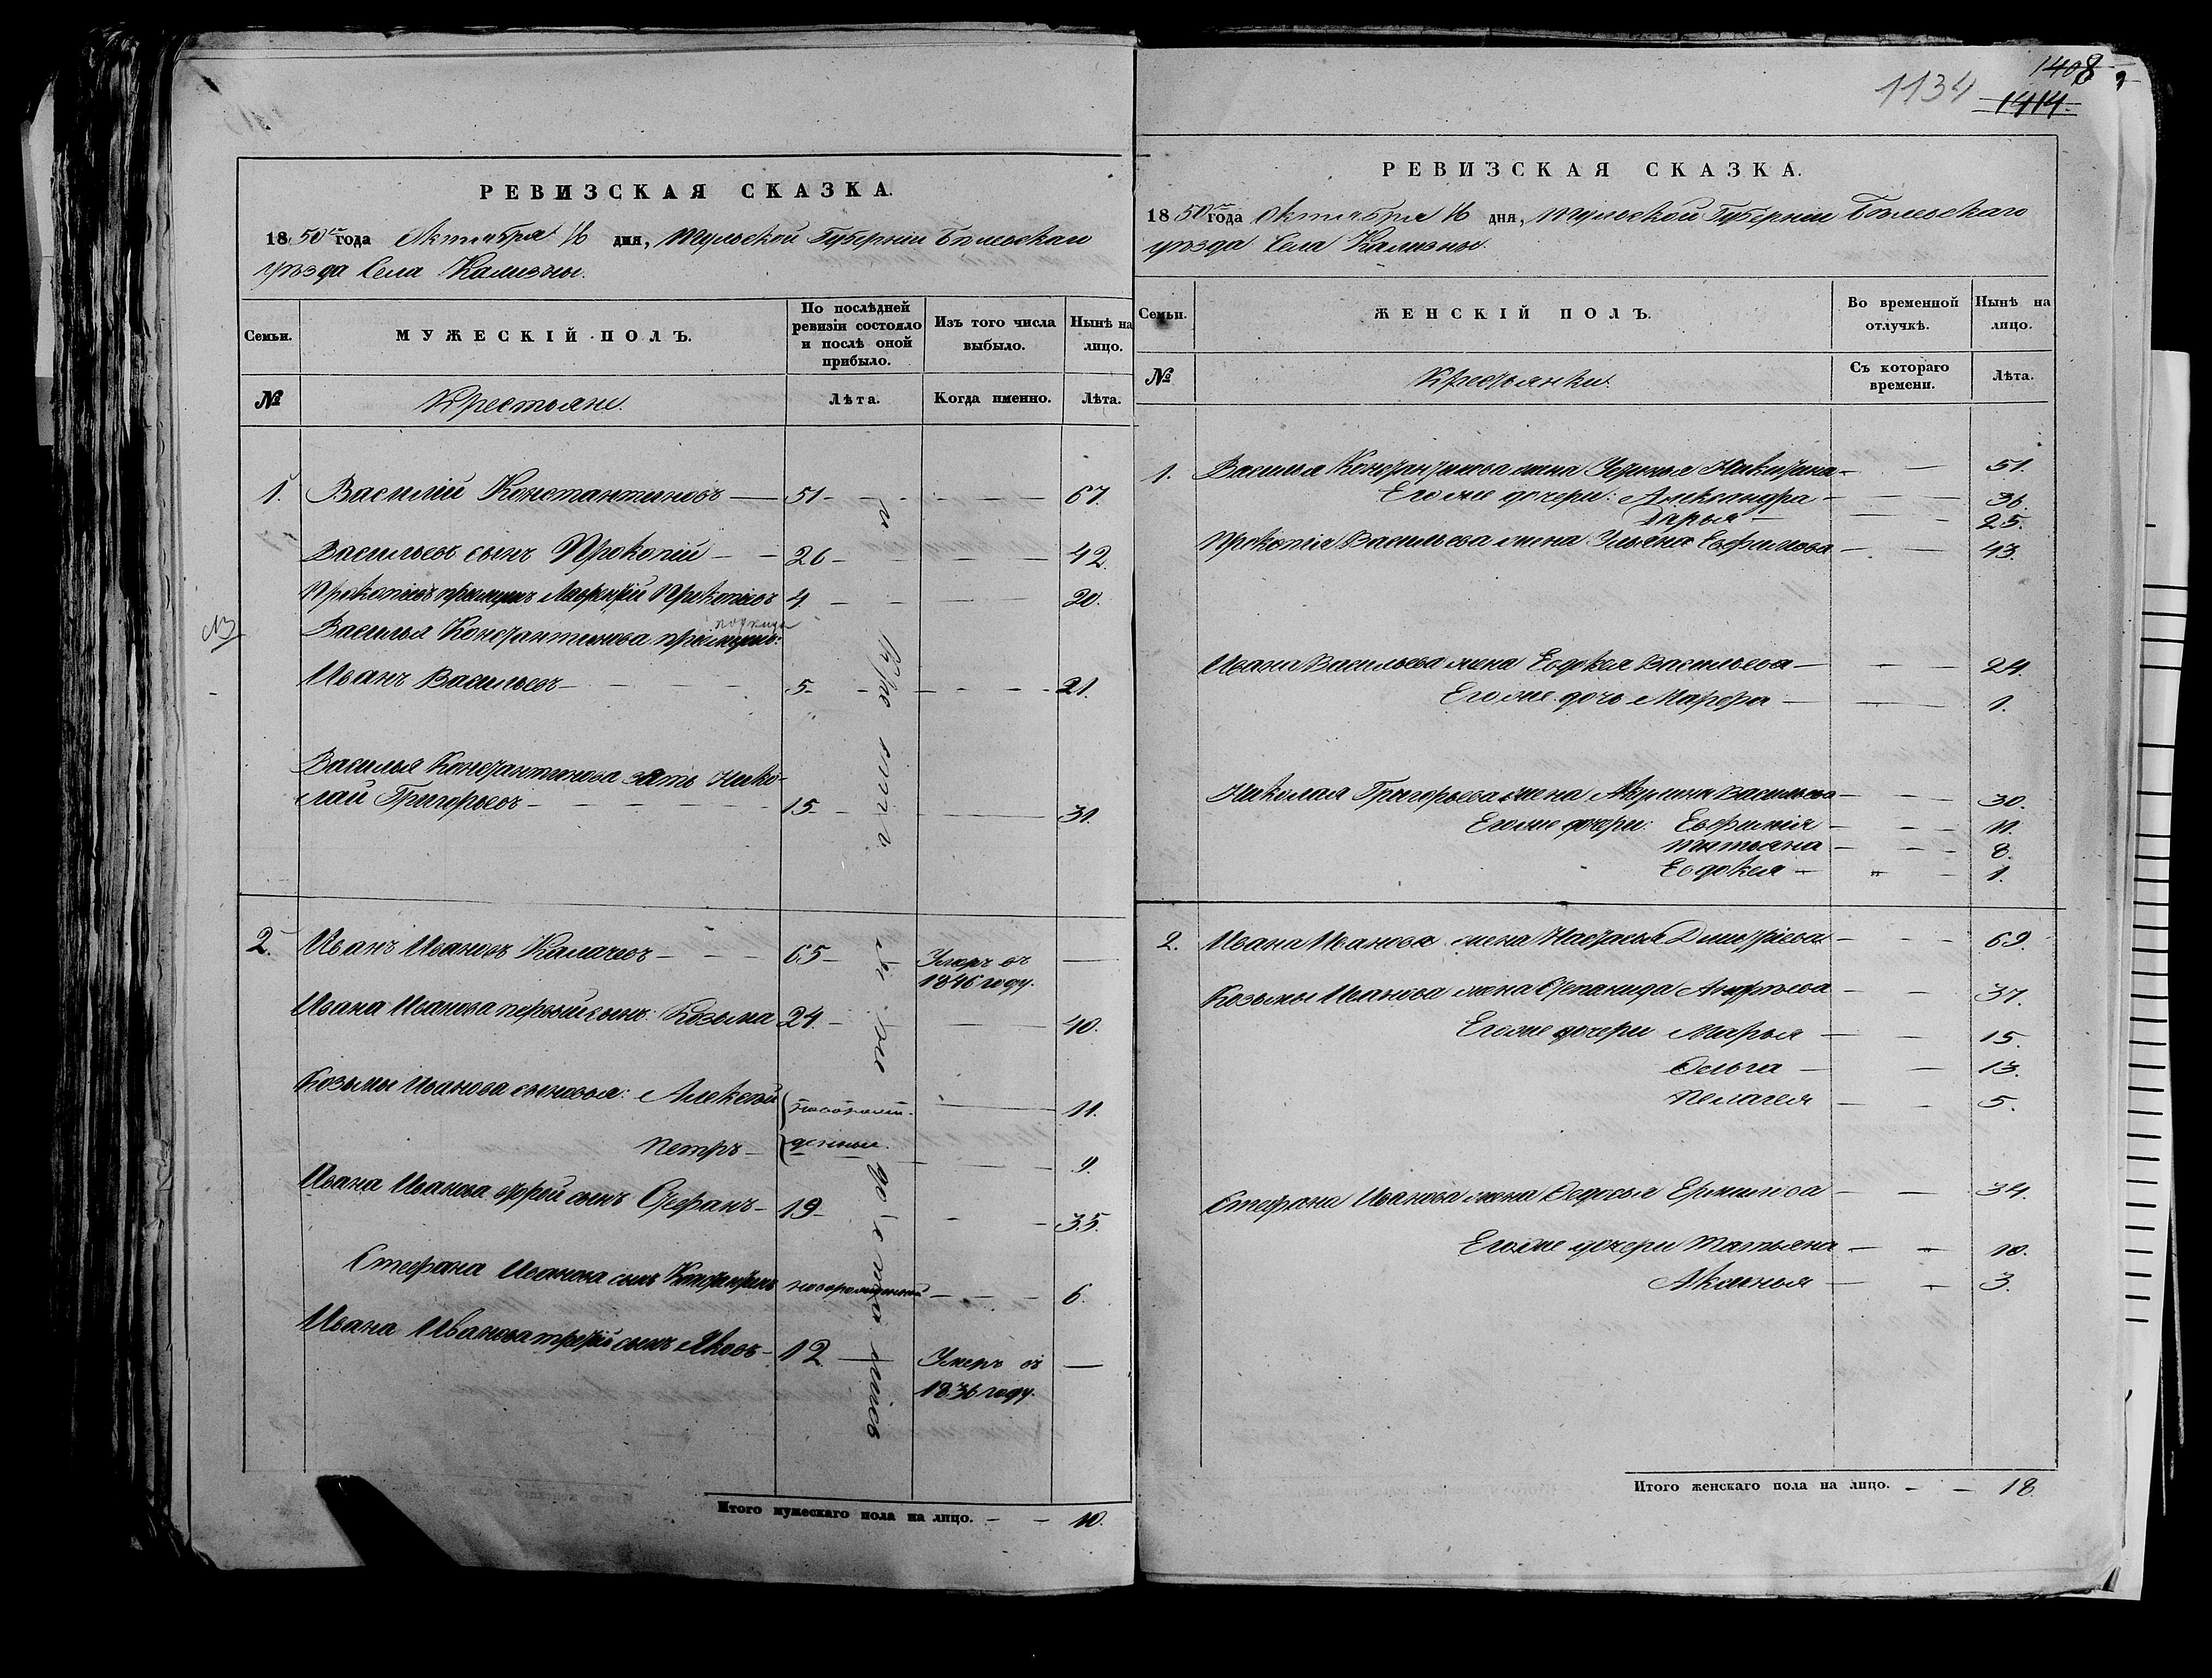 РЕВИЗСКАЯ СКАЗКА.
1850го года Октября 16 дня, Тульской Губерніи Бѣлевскаго
уѣзда Села Кализны.
Семьи.
МУЖЕСКІЙ ПОЛЪ.
По послѣдней ревизіи состояло и послѣ оной прибыло.
Изъ того числа выбыло.
Нынѣ на лицо.
№
Крестьяне.
Лѣта.
Когда именно.
Лѣта.
1. Василій Константиновъ — 51 — 67.
Васильевъ сынъ Прокопій — 26 — 42.
Прокопіевъ пріимышъ Лаврентій Прокопіевъ 4 — 20.
Василья Константинова пріимышъ:
Иванъ Васильевъ — 5 — 21.
Василья Константинова зять Нико-
лай Григорьевъ — 15 — 31.
2. Иванъ Ивановъ Калачевъ — 65 — Умеръ въ —
1846 году.
Ивана Иванова первый сынъ: Козьма 24 — 40.
Козьмы Иванова сыновья: Алексѣй новорож- 11.
Петръ — денные. 9.
Ивана Иванова второй сынъ Стефанъ — 19 — 35.
Стефана Иванова сынъ Константинъ новорожденный — 6.
Ивана Иванова третій сынъ Яковъ — 12 — Умеръ въ —
1836 году.
Итого мужескаго пола на лицо. — — 10.
1134
1408
1414.
РЕВИЗСКАЯ СКАЗКА.
1850го года Октября 16 дня, Тульской Губерніи Бѣлевскаго
уѣзда Села Кализны.
Семьи.
ЖЕНСКІЙ ПОЛЪ.
Во временной отлучкѣ.
Нынѣ на лицо.
№
Крестьянки.
Съ котораго времени.
Лѣта.
1. Василья Константинова жена Устинья Никитина — — 51.
Его же дочери: Александра — — 36.
Дарья — — 25.
Прокопія Васильева жена Ульяна Ефимова — — 43.
Ивана Васильева жена Евдокея Васильева — — 24.
Его же дочь Марфа — — 1.
Николая Григорьева жена Акулина Васильева — — 30.
Его же дочери: Евфимія — — 11.
Татьяна — — 8.
Евдокея — „ — 1.
2. Ивана Иванова жена Настасья Дмитріева — — 69.
Козьмы Иванова жена Степанида Андреева — — 37.
Его же дочери Марья — — 15.
Ольга — — 13.
Пелагея — — 5.
Стефана Иванова жена Федосья Ермилова — — 34.
Его же дочери Татьяна — — 10.
Аксинья — — 3.
Итого женскаго пола на лицо. — — 18.